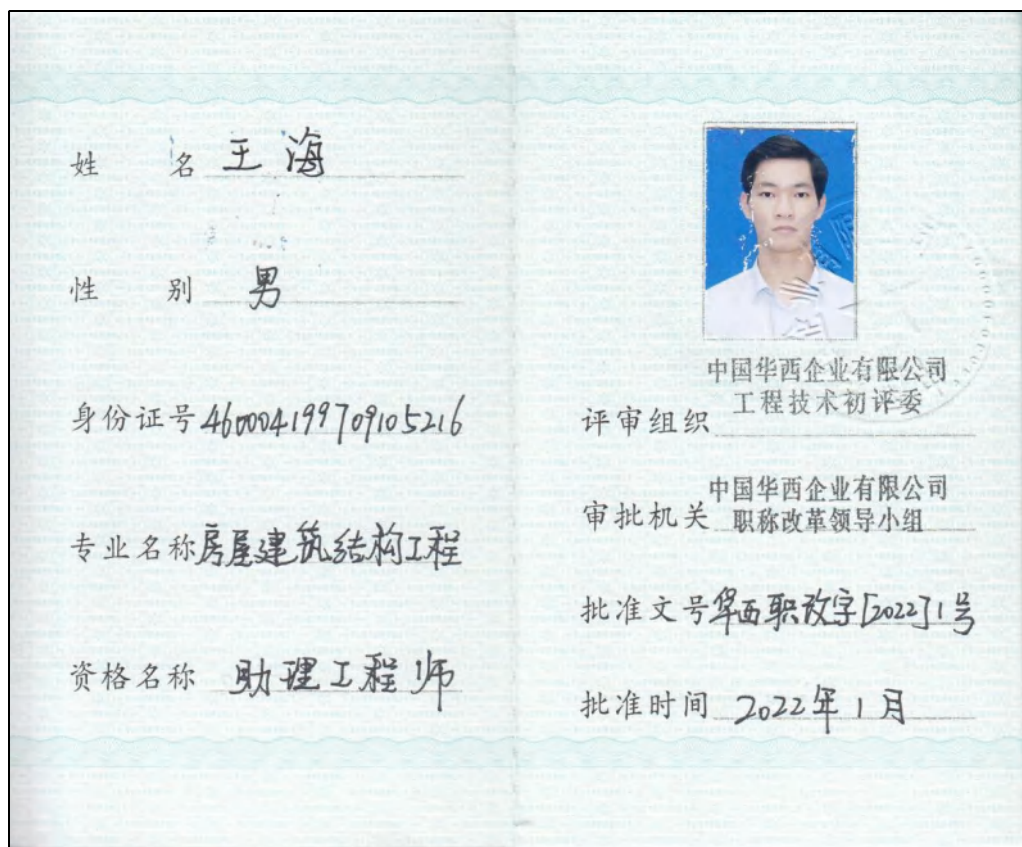 姓 名 王海
性 别 男
身份证号 460004199709105216
专业名称 房屋建筑结构工程
资格名称 助理工程师
中国华西企业有限公司
评审组织 工程技术初评委
中国华西企业有限公司
审批机关 职称改革领导小组
批准文号 华西职改字[2022]1号
批准时间 2022年1月